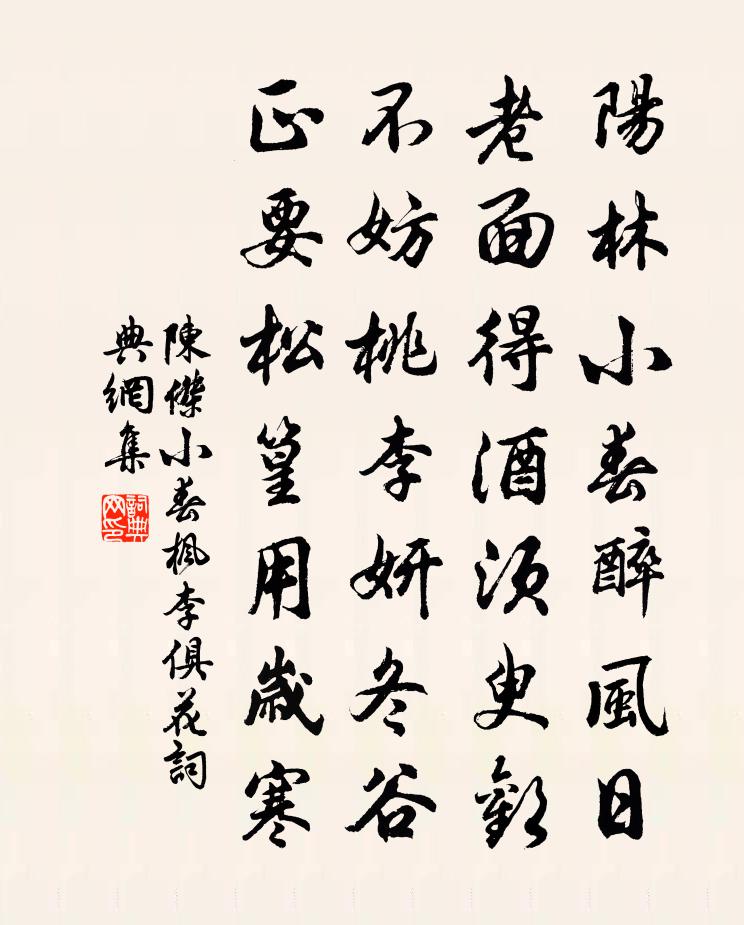 陽林小春醉風日
老面得酒須臾歡
不妨桃李妍冬谷
正要松篁用歲寒
陳傑小春楓李俱花詞
典網集
詞典網印